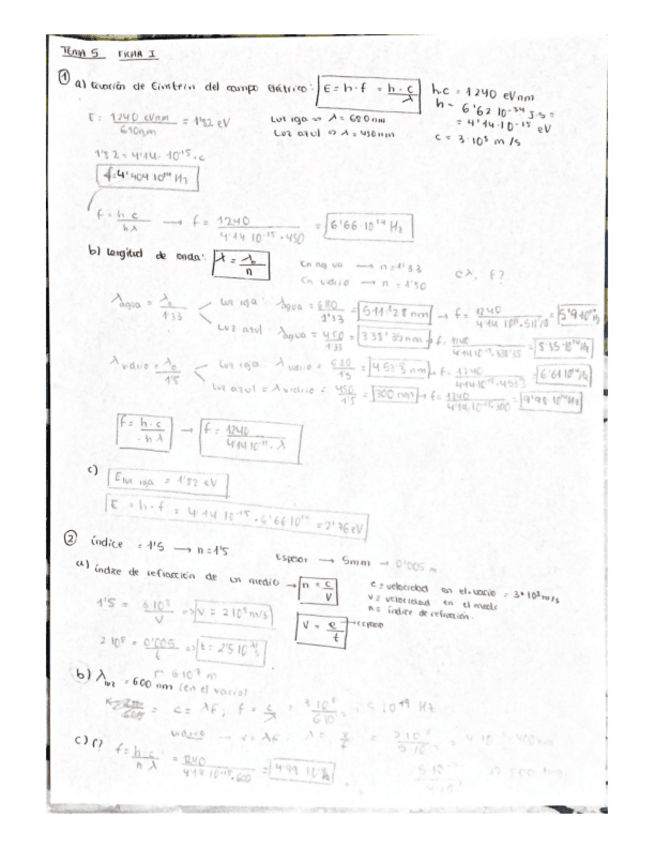 TEMA 5 FICHA I
① a) Ecuación de Einstein del campo Eléctrico: E = h·f = h·c/λ
h·c = 1240 eVnm
h = 6'62 10⁻³⁴ J·s =
= 4'14·10⁻¹⁵ eV
c = 3·10⁸ m/s
E = 1240 eVnm / 680nm = 1'82 eV
Luz roja => λ = 680nm
Luz azul => λ = 450nm
1'82 = 4'14·10⁻¹⁵·c
f = 4'404 10¹⁴ Hz
f = h·c / hλ → f = 1240 / 4'14·10⁻¹⁵·450 = 6'66·10¹⁴ Hz
b) longitud de onda: λ = λ₀/n
En agua → n = 1'33
En vidrio → n = 1'50
c λ, f?
λagua = λ₀/1'33
Luz roja: λagua = 680/1'33 = 511'28 nm → f = 1240
Luz azul: λagua = 450/1'33 = 338'35nm
λvidrio = λ₀/1'5
Luz roja: λvidrio = 680/1'5 = 453'3 nm → f = 1240 / 4'14·10⁻¹⁵·453'3 = 6'61 10¹⁴ Hz
Luz azul = λvidrio = 450/1'5 = 300 nm → f = 1240 / 4'14·10⁻¹⁵·300 = 9'98 10¹⁴ Hz
f = h·c / h λ → f = 1240 / 4'14 10⁻¹⁵·λ
c) E luz roja = 1'82 eV
E = h·f = 4'14 10⁻¹⁵·6'66 10¹⁴ = 2'76 eV
② índice = 1'5 → n = 1'5 Espesor → 5mm → 0'005 m
a) índice de refracción de un medio → n = c/v
c = velocidad en el vacio = 3·10⁸ m/s
v = velocidad en el medio
n = índice de refracción.
1'5 = 3·10⁸ / v => v = 2·10⁸ m/s
v = e/t → espesor
2·10⁸ = 0'005 / t
b) λluz = 600 nm (en el vacio)
c = λf; f = c/λ
vidrio → v = λf
c) f? f = h·c / h λ = 1240 / 4'14 10⁻¹⁵·600